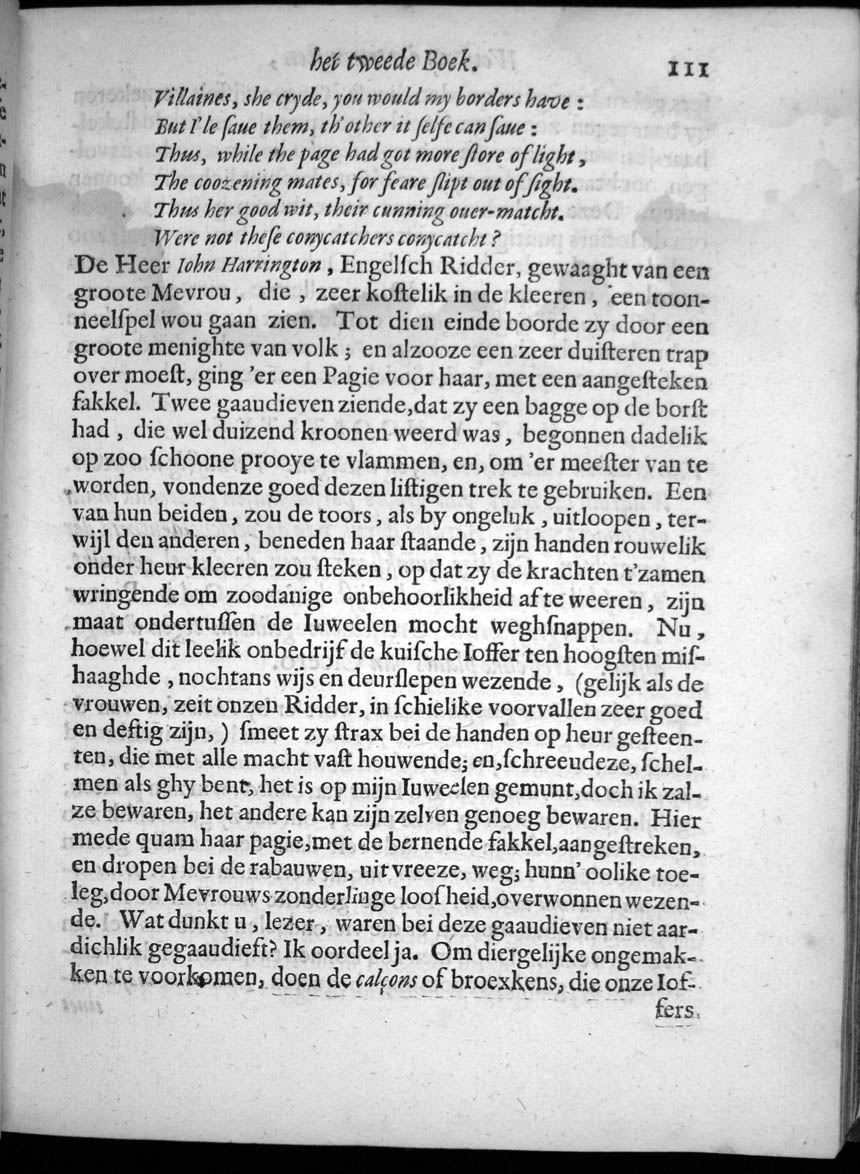 het tweede Boek. 111
Villaines, she cryde, you would my borders have :
But I'le ſaue them, th'other it ſelfe can ſaue :
Thus, while the page had got more ſtore of light,
The coozening mates, for feare ſlipt out of ſight.
Thus her good wit, their cunning ouer-matcht.
Were not theſe conycatchers conycatcht?
De Heer Iohn Harrington, Engelſch Ridder, gewaaght van een
groote Mevrou, die, zeer koſtelik in de kleeren, een toon-
neelſpel wou gaan zien. Tot dien einde boorde zy door een
groote menighte van volk; en alzooze een zeer duiſteren trap
over moeſt, ging 'er een Pagie voor haar, met een aangeſteken
fakkel. Twee gaaudieven ziende, dat zy een bagge op de borſt
had, die wel duizend kroonen weerd was, begonnen dadelik
op zoo ſchoone prooye te vlammen, en, om 'er meeſter van te
worden, vondenze goed dezen liſtigen trek te gebruiken. Een
van hun beiden, zou de toors, als by ongeluk, uitloopen, ter-
wijl den anderen, beneden haar ſtaande, zijn handen rouwelik
onder heur kleeren zou ſteken, op dat zy de krachten t'zamen
wringende om zoodanige onbehoorlikheid af te weeren, zijn
maat ondertuſſen de Iuweelen mocht weghſnappen. Nu,
hoewel dit leelik onbedrijf de kuiſche Ioffer ten hoogſten miſ-
haaghde, nochtans wijs en deurſlepen wezende, (gelijk als de
vrouwen, zeit onzen Ridder, in ſchielike voorvallen zeer goed
en deftig zijn,) ſmeet zy ſtrax bei de handen op heur geſteen-
ten, die met alle macht vaſt houwende; en, ſchreeudeze, ſchel-
men als ghy bent, het is op mijn Iuweelen gemunt, doch ik zal-
ze bewaren, het andere kan zijn zelven genoeg bewaren. Hier
mede quam haar pagie, met de bernende fakkel, aangeſtreken,
en dropen bei de rabauwen, uit vreeze, weg; hunn' oolike toe-
leg, door Mevrouws zonderlinge loofheid, overwonnen wezen-
de. Wat dunkt u, lezer, waren bei deze gaaudieven niet aar-
dichlik gegaaudieft? Ik oordeel ja. Om diergelijke ongemak-
ken te voorkomen, doen de calçons of broexkens, die onze Iof-
fers